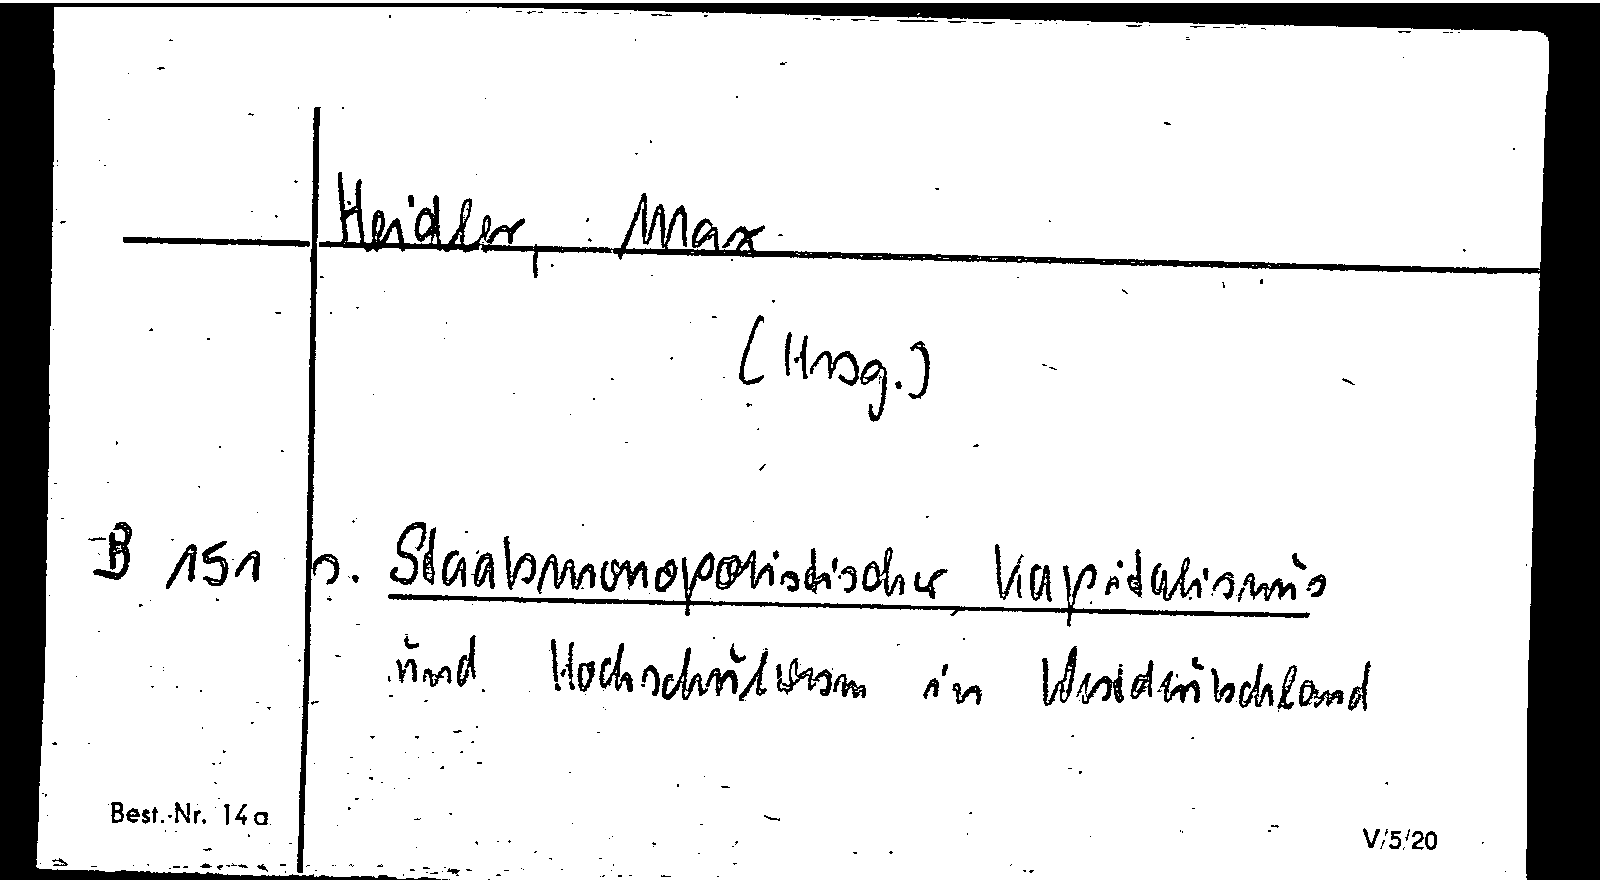 Heidler, Max
(Hrsg.)
B 151 s. Staatsmonopolistischer Kapitalismus
und Hochschulwesen in Westdeutschland
Best.-Nr. 14a
V/5/20